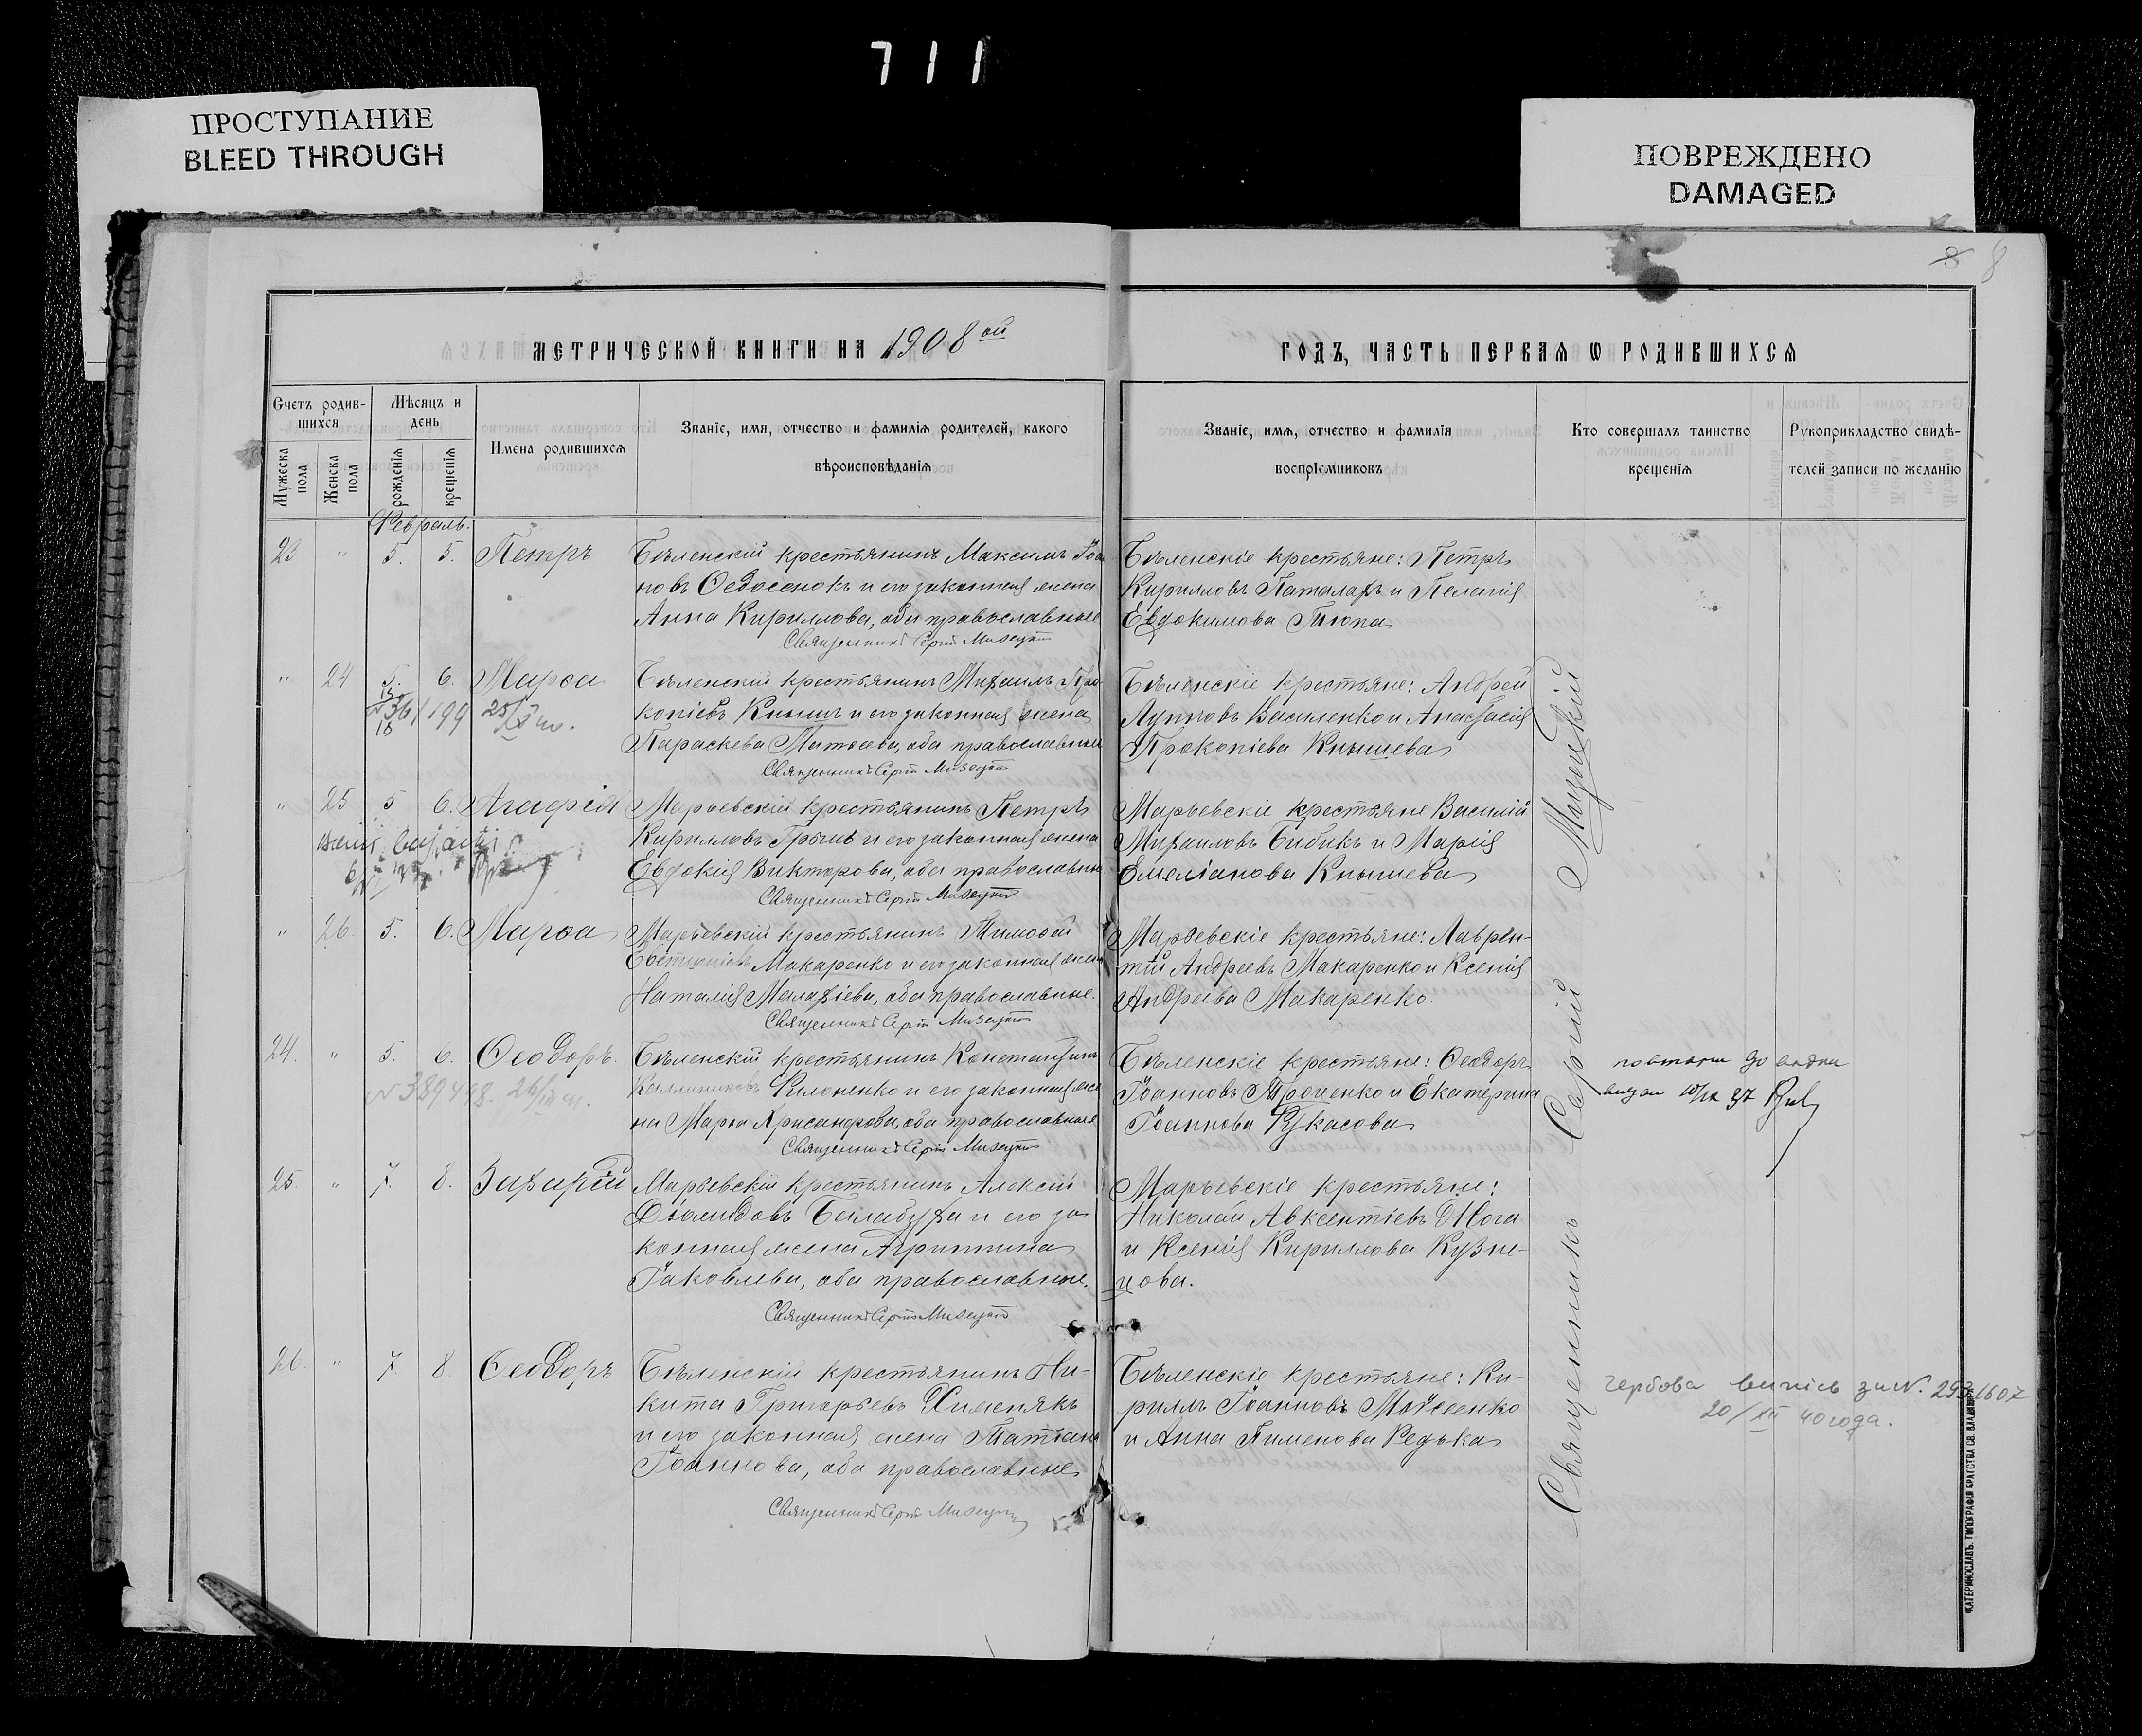 711
ПРОСТУПАНИЕ
BLEED THROUGH
ПОВРЕЖДЕНО
DAMAGED
8 8
МЕТРИЧЕСКОЙ КНИГИ НА 1908 ой
ГОДЪ, ЧАСТЬ ПЕРВАЯ Ѡ РОДИВШИХСЯ
Счетъ родив-
шихся
Мужеска пола
Женска пола
Мѣсяцъ и
день
рожденія
крещенія
Имена родившихся
Званіе, имя, отчество и фамилія родителей, какого
вѣроисповѣданія
Званіе, имя, отчество и фамилія
воспріемниковъ
Кто совершалъ таинство
крещенія
Рукоприкладство свидѣ-
телей записи по желанію
Февраль.
23 " 5. 5. Петръ
Бѣленскій крестьянинъ Максимъ Іоан
новъ Ѳедосенокъ и его законная жена
Анна Кириллова, оба православные
Священникъ Сергій Мизецкій
Бѣленскіе крестьяне: Петръ
Кирилловъ Паталахъ и Пелагія
Евдокимова Тюпа
" 24 5. 6. Марѳа
25/X
Бѣленскій крестьянинъ Михаилъ Про
копіевъ Кнышъ и его законная жена
Параскева Матѳеева, оба православные
Священникъ Сергій Мизецкій
Бѣленскіе крестьяне: Андрей
Лупповъ Василенко и Анастасія
Прокопіева Кнышева
" 25 5 6. Агафія
Марьевскій крестьянинъ Петръ
Кирилловъ и его законная жена
Евдокія Викторова, оба православные
Священникъ Сергій Мизецкій
Марьевскіе крестьяне Василій
Михаиловъ Бибикъ и Марія
Емеліанова Кнышева
" 26. 5. 6. Марѳа
Марьевскій крестьянинъ Тимоѳей
Макаренко и его законная жена
Наталія Малахіева, оба православные.
Священникъ Сергій Мизецкій
Марьевскіе крестьяне: Лаврен-
тій Андреевъ Макаренко и Ксенія
Андреева Макаренко.
24. " 5. 6. Ѳеодоръ.
№ 389498. 26/
Бѣленскій крестьянинъ Константинъ
Каллиниковъ Филоненко и его законная же
на Марѳа Хрисанфова, оба православные
Священникъ Сергій Мизецкій
Бѣленскіе крестьяне: Ѳеодоръ
Іоанновъ Проценко и Екатерина
Іоаннова Лукасова
25. " 7. 8. Захарій
Марьевскій крестьянинъ Алексій
Діомидовъ Белабуха и его за
конная жена Агриппина
Іаковлева, оба православные.
Священникъ Сергій Мизецкій
Марьевскіе крестьяне:
Николай Авксентіевъ Нога
и Ксенія Кириллова Кузне-
цова.
26. " 7. 8. Ѳеодоръ
Бѣленскій крестьянинъ Ни-
кита Григорьевъ Хименякъ
и его законная жена Татіана
Іоаннова, оба православные
Священникъ Сергій Мизецкій
Бѣленскіе крестьяне: Ки-
риллъ Іоанновъ Мойсеенко
и Анна Пименова Редька
Священникъ Сергій Мизецкій
20/III 40 года.
ЕКАТЕРИНОСЛАВЪ. ТИПОГРАФІЯ БРАТСТВА СВ. ВЛАДИМІРА